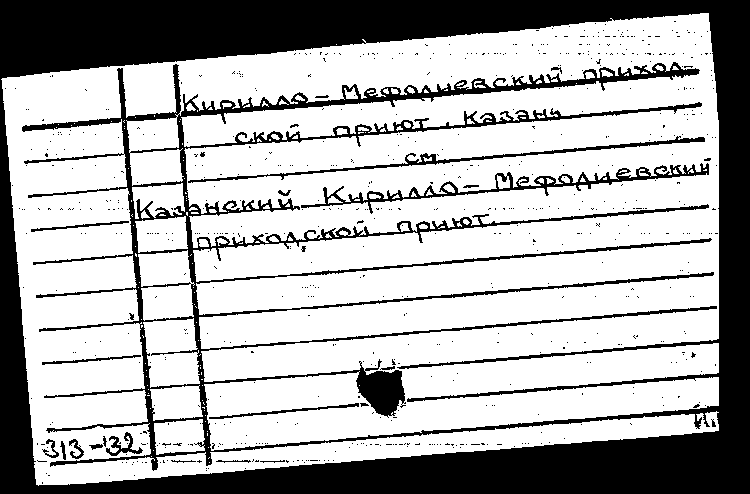 Кирилло-Мефодиевский приход-
ской приют. Казань
см.
Казанский Кирилло-Мефодиевский
приходской приют.
313-132
И.